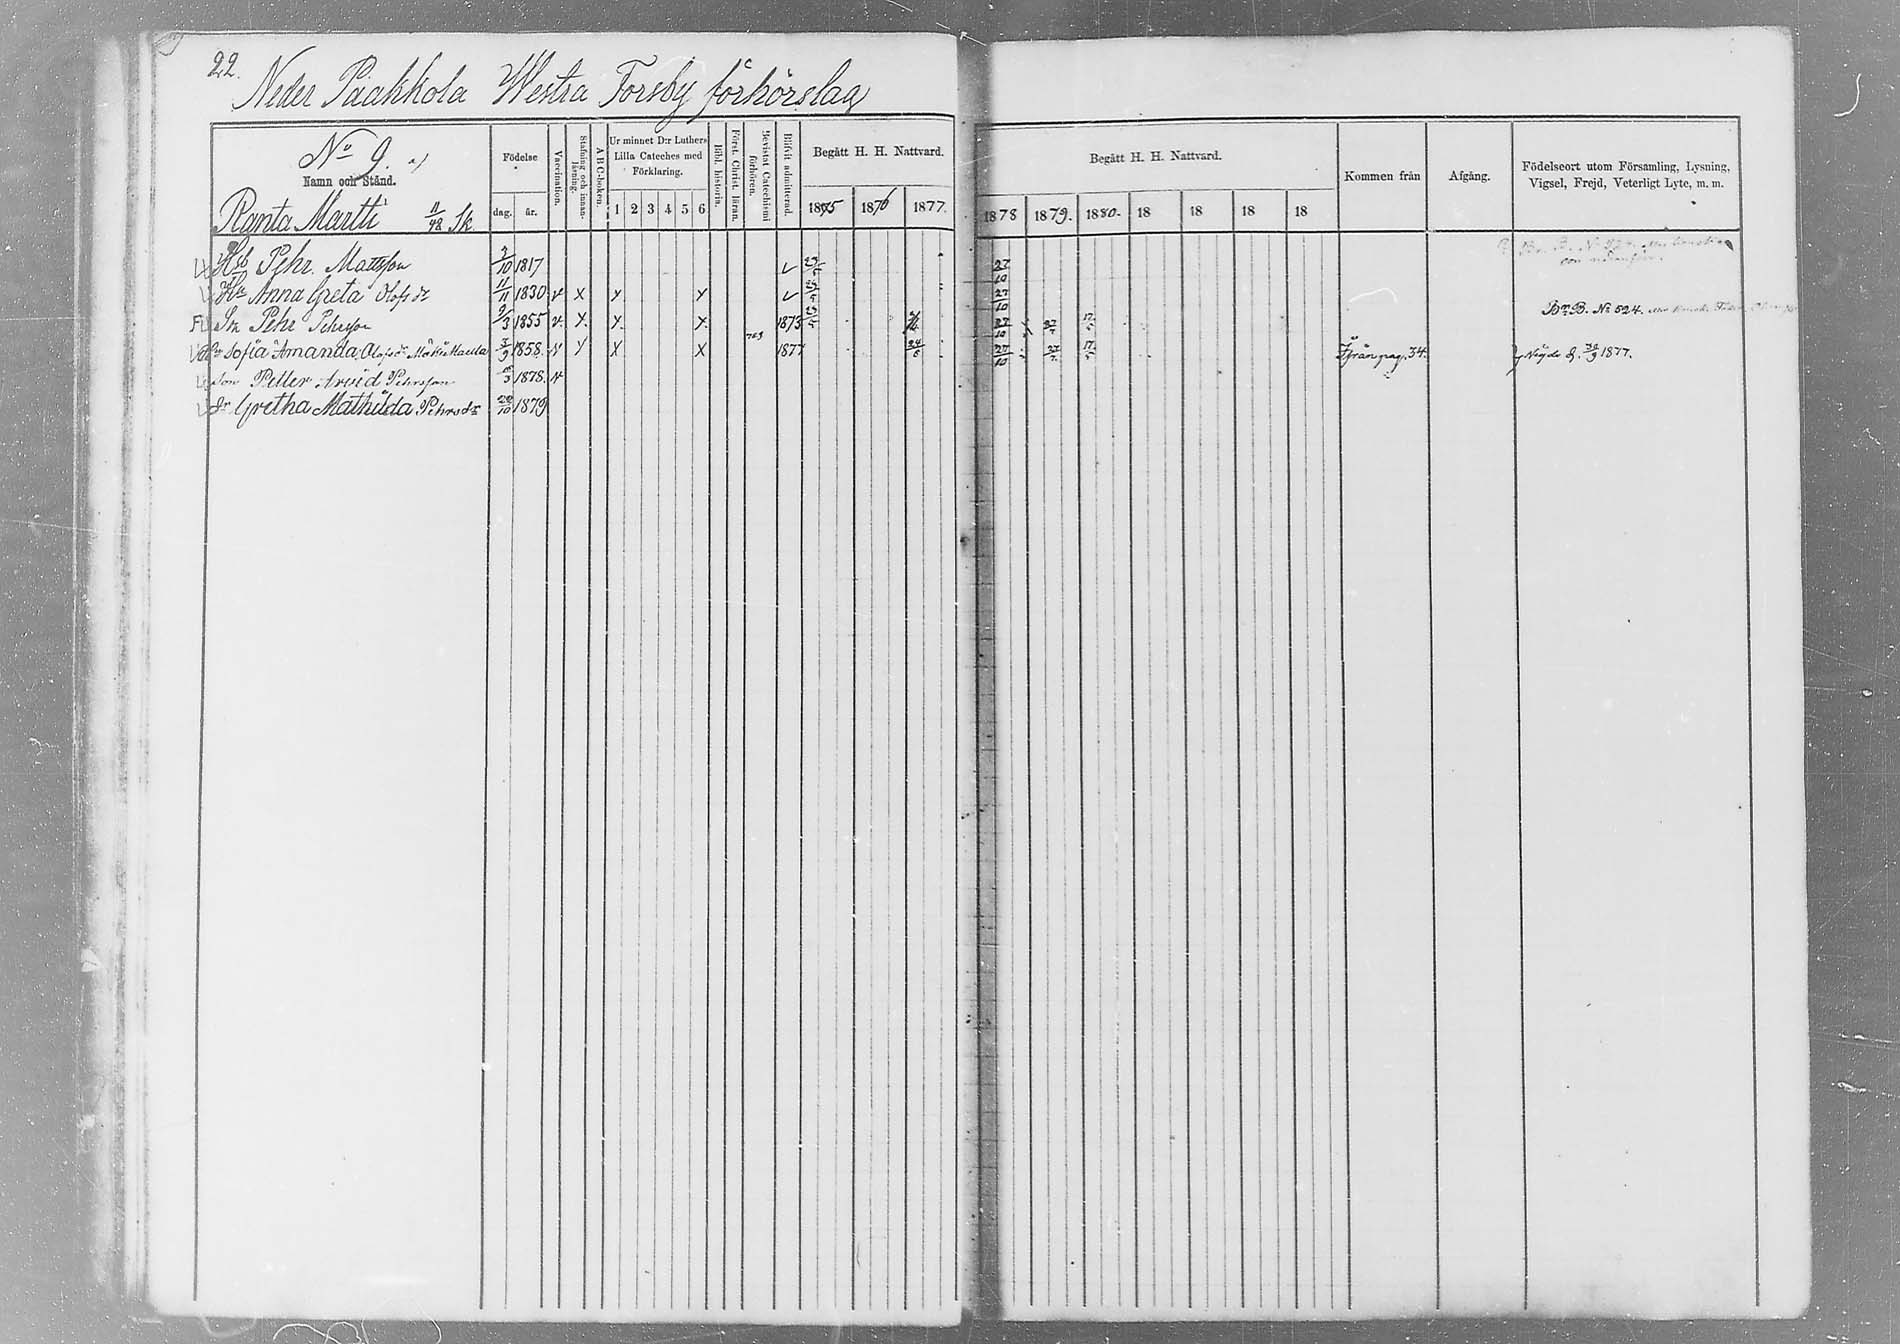 22.
Neder Paakkola Westra Forsby förhörslag
No 9. a)
Namn och Stånd.
Ranta Martti 11/48 Sk.
Födelse
dag. år.
Vaccination.
Stafning och innan-läsning.
A B C-boken.
Ur minnet D:r Luthers
Lilla Cateches med
Förklaring.
1 2 3 4 5 6
Bibl. historia.
Först. Christ. läran.
Bevistat Catechismi förhören.
Blifvit admitterad.
Begått H. H. Nattvard.
1875 1876 1877.
Begått H. H. Nattvard.
1878 1879. 1880. 18 18 18 18
Kommen från
Afgång.
Födelseort utom Församling, Lysning,
Vigsel, Frejd, Veterligt Lyte, m. m.
Hsb Pehr Mattsson 2/10 1817 v 23/5 27/10
Hu Anna Greta Olofsdr 11/11 1830 v x x x v 23/5 27/10
Sn Pehr Pehrsson 9/3 1855 v. x. x. x. 1873 23/5 27/10 27/7 17/5 Br. B. No 524.
Hu Sofia Amanda Olofsdr 3/9 1858. v x x x 1877 24/6 27/10 27/7 17/5 Ifrån pag. 34. 1877.
Son Petter Arvid Pehrsson 1878. v
dr Gretha Mathilda Pehrsdr 1879